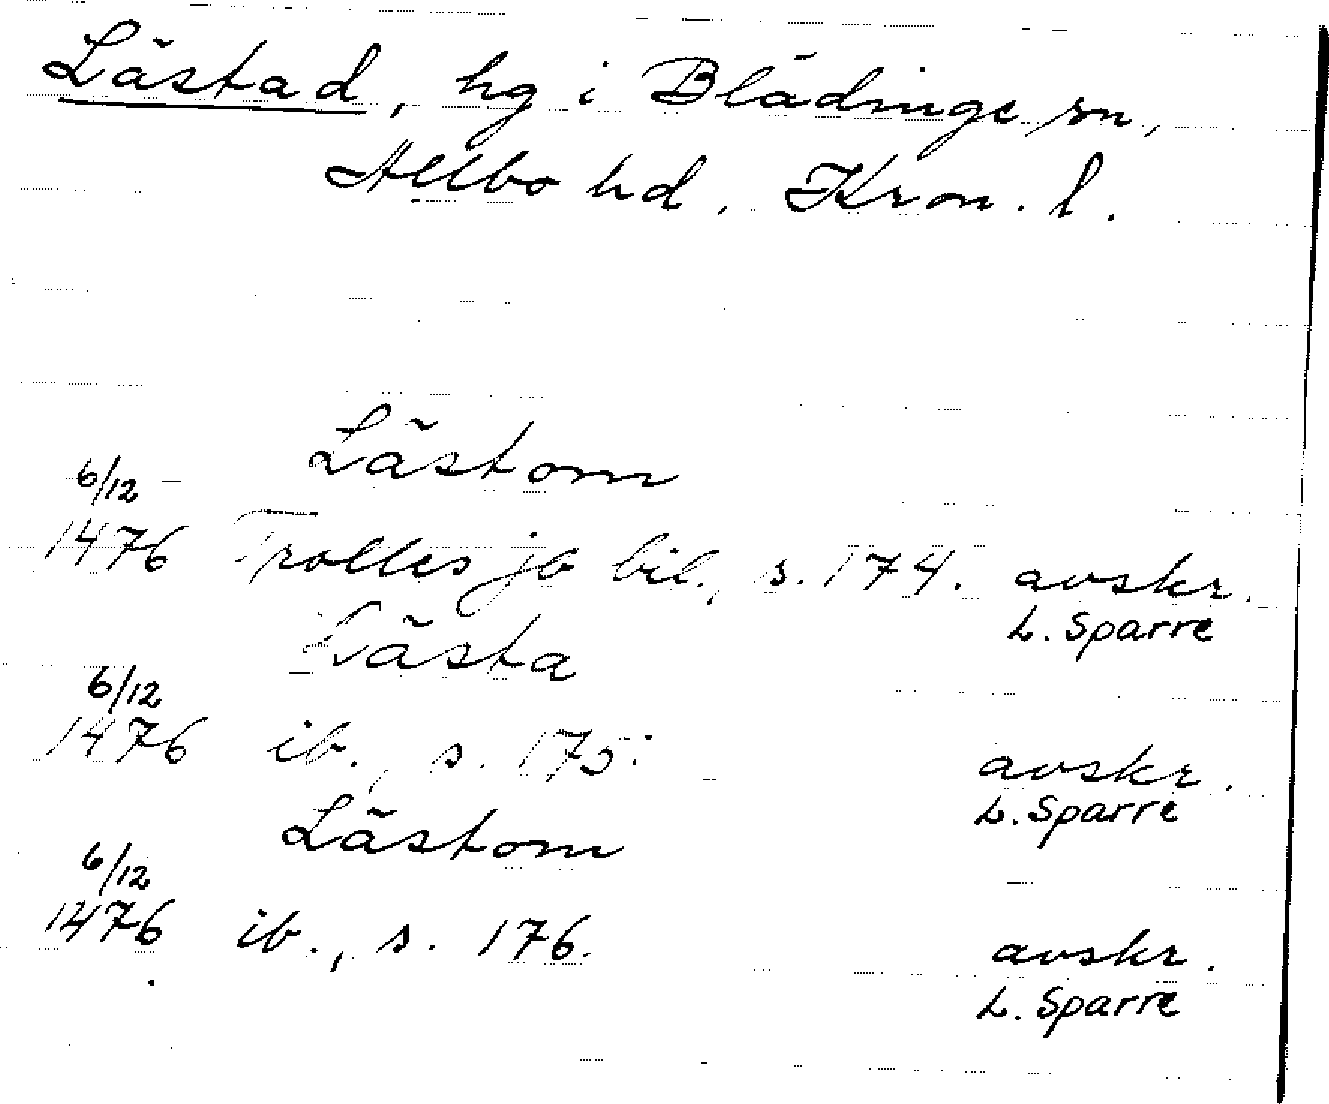 Lästad, hg i Blädinge sn,
Allbo hd. Kron. l.
Lästom
6/12
1476 Trolles jb bil., s. 174. avskr.
L. Sparre
Lästa
6/12
1476 ib., s. 175. avskr.
L. Sparre
Lästom
6/12
1476 ib., s. 176. avskr.
L. Sparre